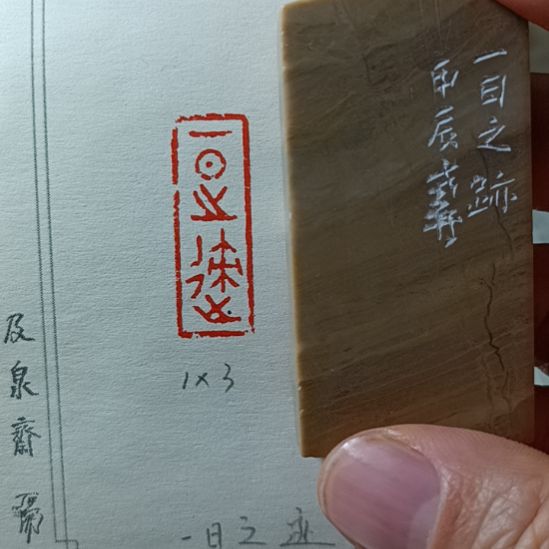 一日之迹
一日之跡
甲辰義
1×3
一日之迹
及泉齋